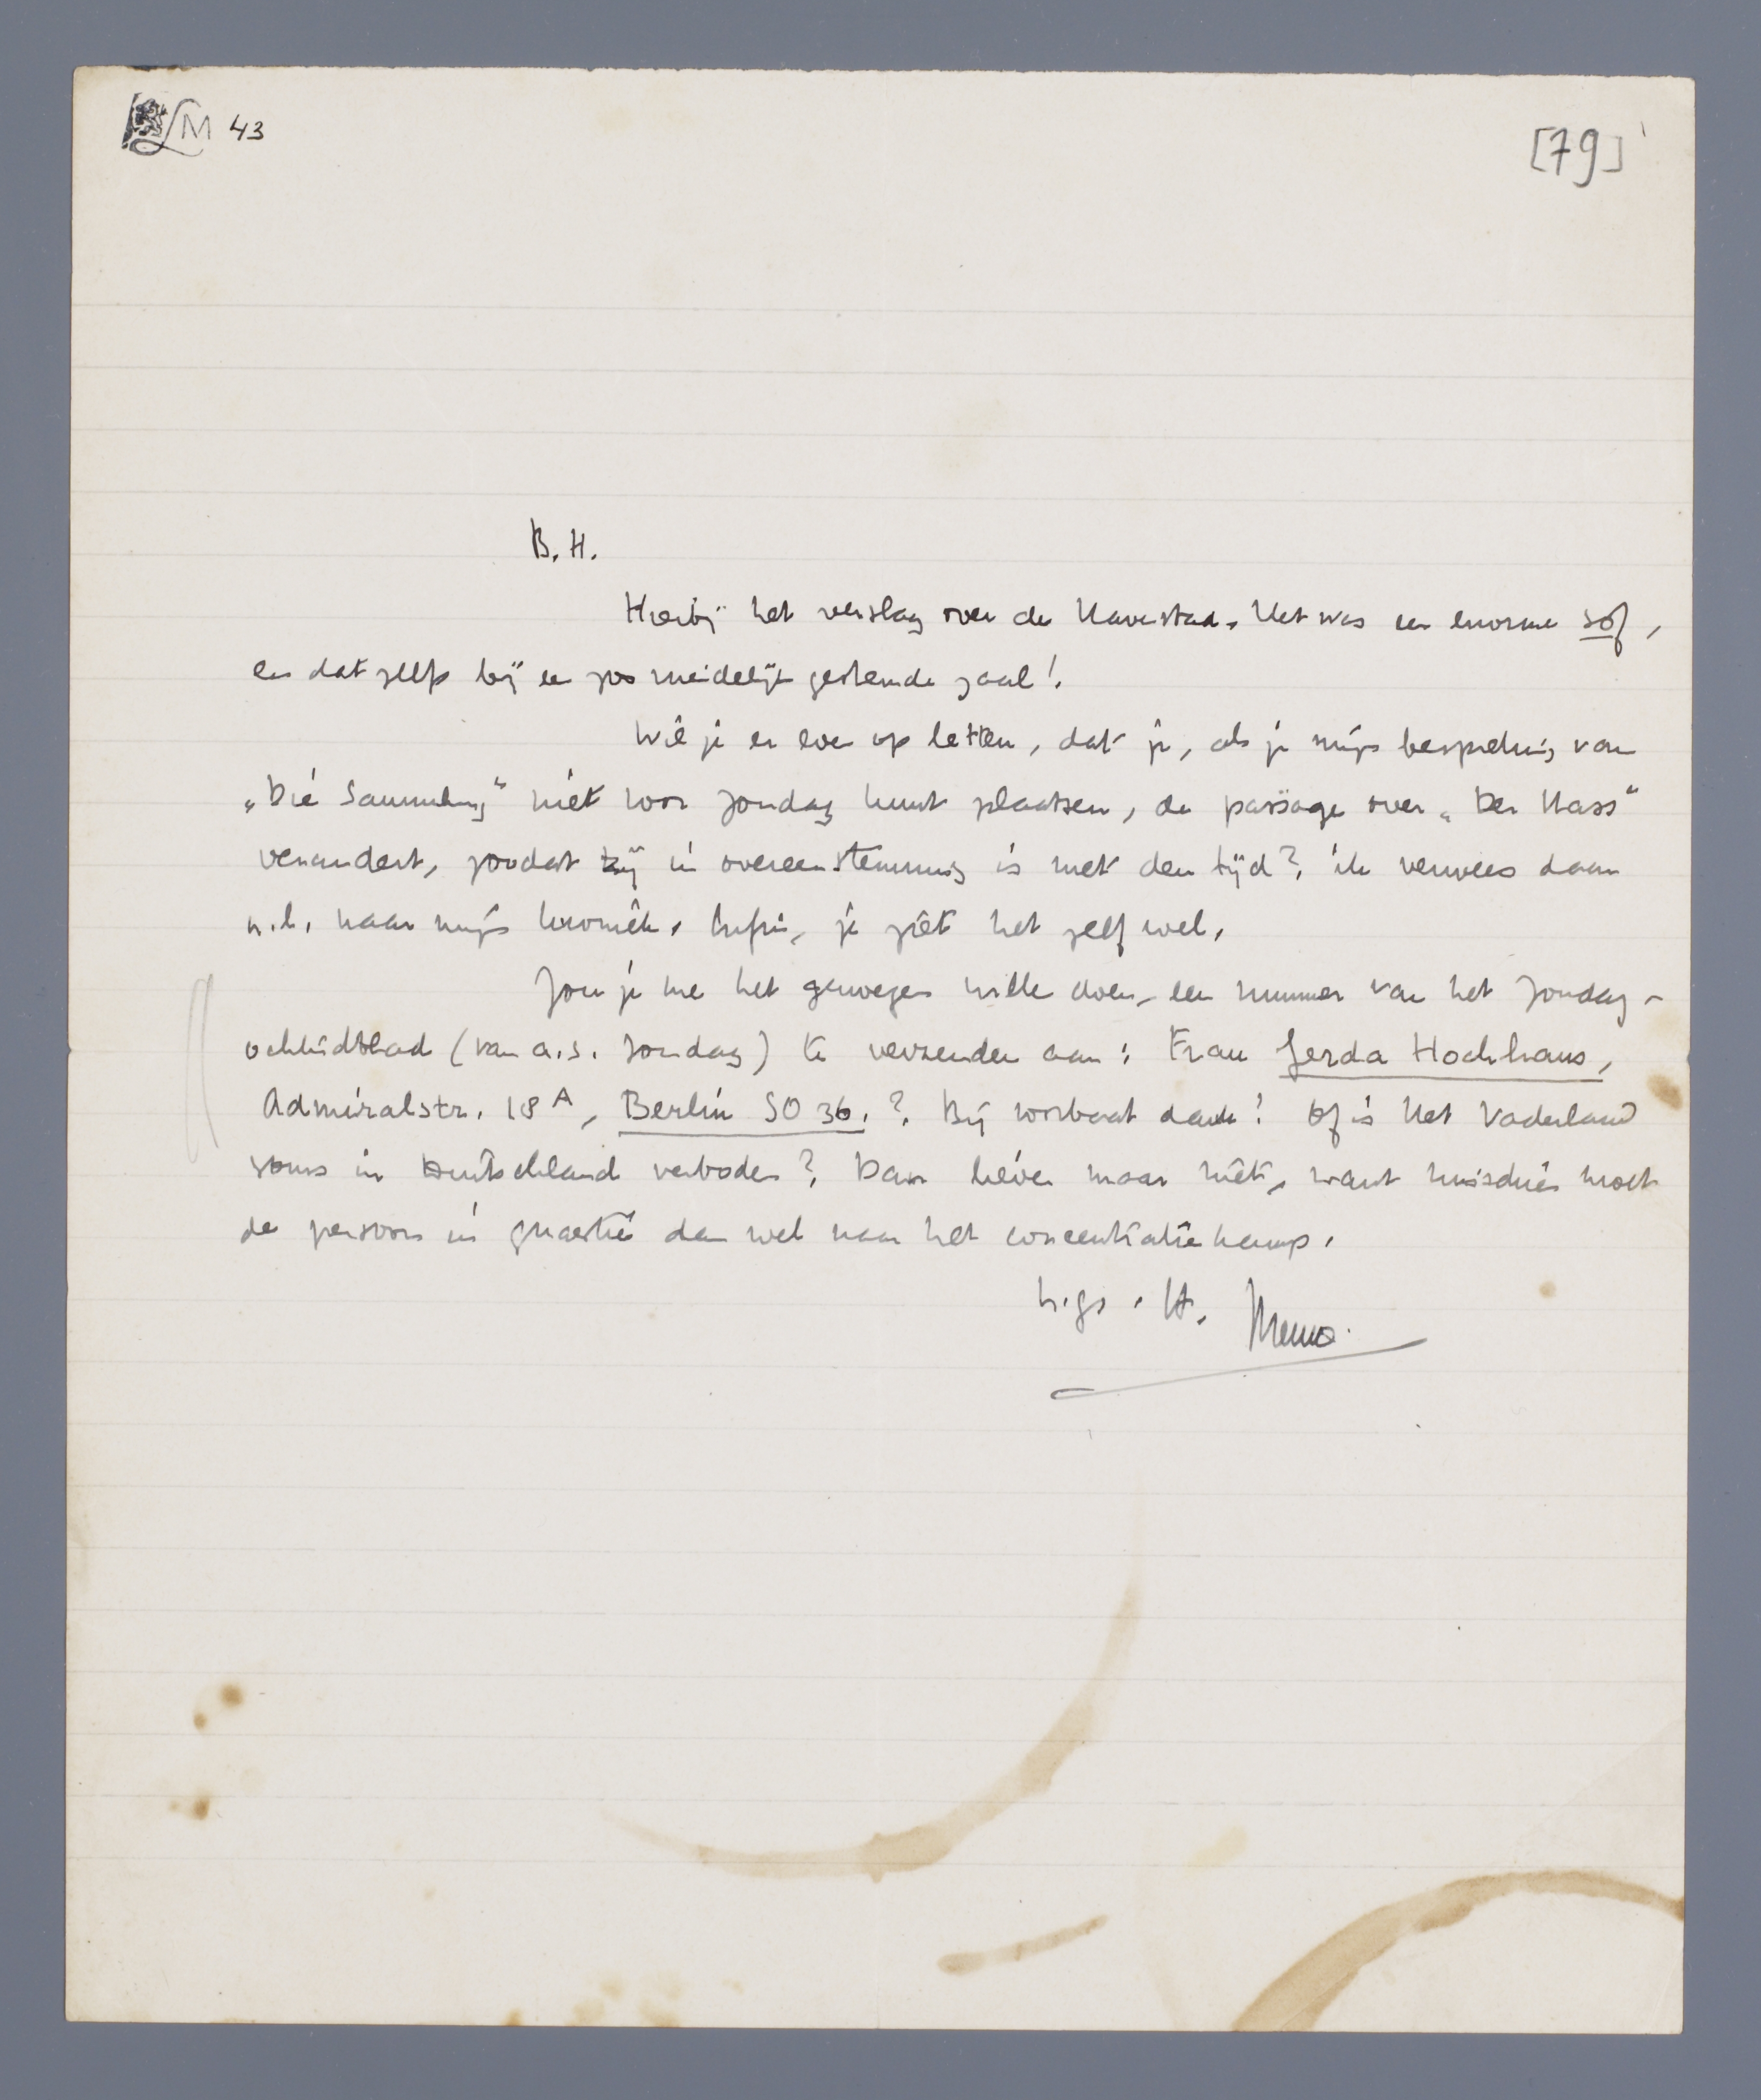 LM 43
[79]
B. H.
Hierbij het verslag over de Havenstad. Het was een enorme sof,
en dat zelfs bij een zoo meidelijk gestemde zaal!
Wil je er even op letten, dat je, als je mijn bespreking van
„Die Sammlung" niet voor Zondag kunt plaatsen, de passage over „Der Hass"
verandert, zoodat zij in overeenstemming is met den tijd? ik verwees daar
n.l. naar mijn kroniek. Enfin, je ziet het zelf wel.
Zou je me het genoegen willen doen, een nummer van het Zondag-
ochtendblad (van a.s. Zondag) te verzenden aan: Frau Gerda Hochhaus,
Admiralstr. 18A, Berlin SO 36.? Bij voorbaat dank! Of is Het Vaderland
soms in Duitschland verboden? Dan liever maar niet, want misschien moet
de persoon in quaestie dan wel naar het concentratiekamp.
h.gr. t.t. Menno